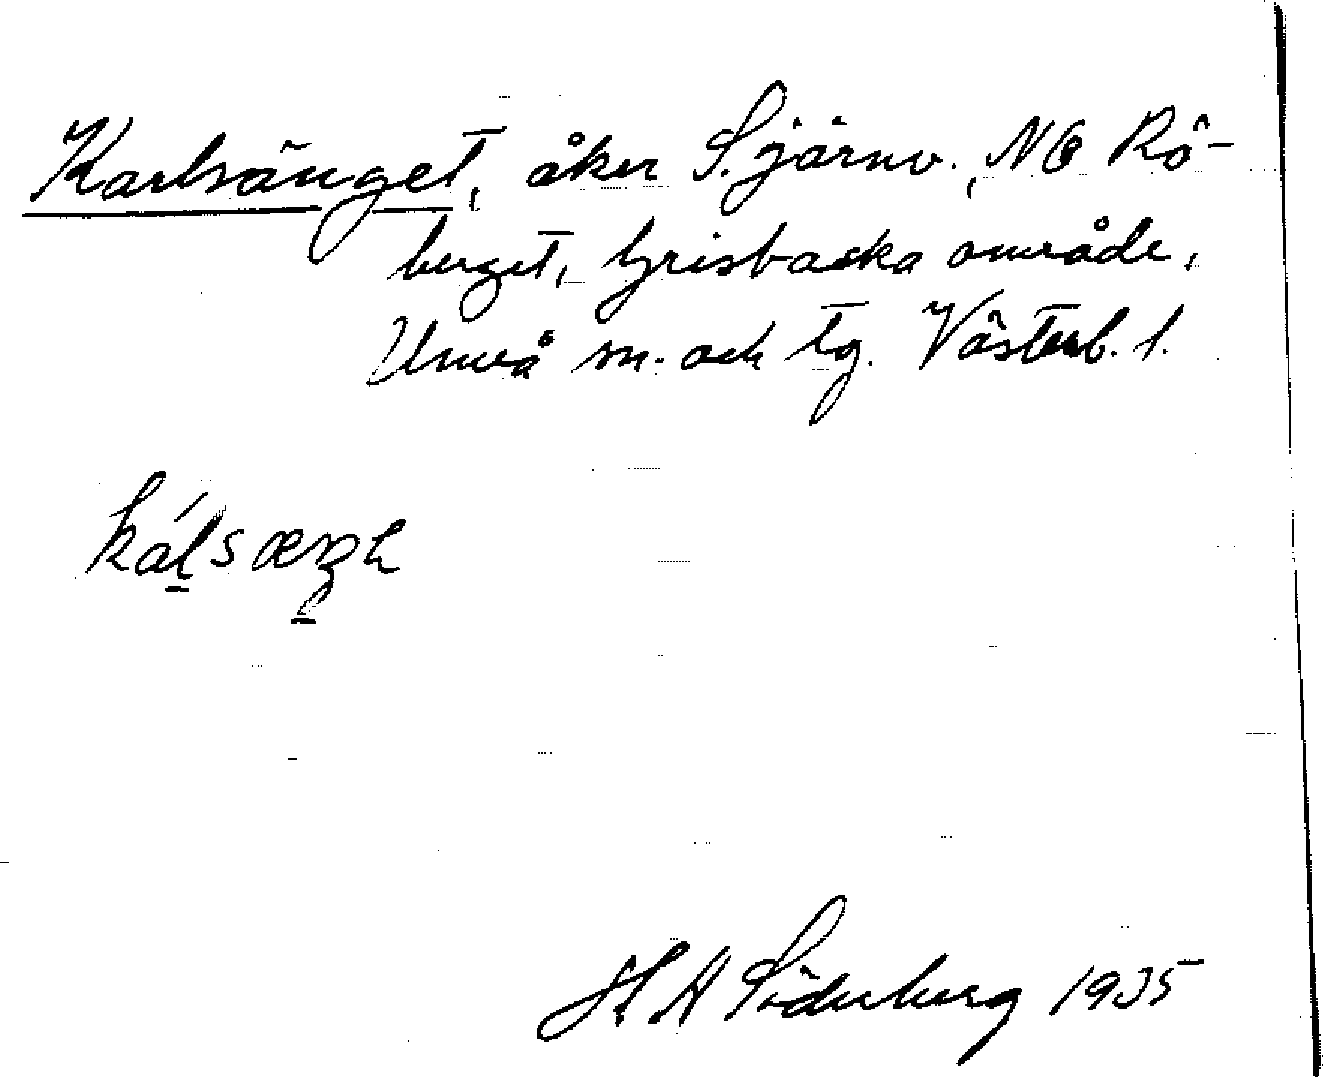 Karlsänget, åker S. järnv., NO Rö-
berget, Grisbacka område,
Umeå sn. och tg. Västerb. l.
H A Söderberg 1935